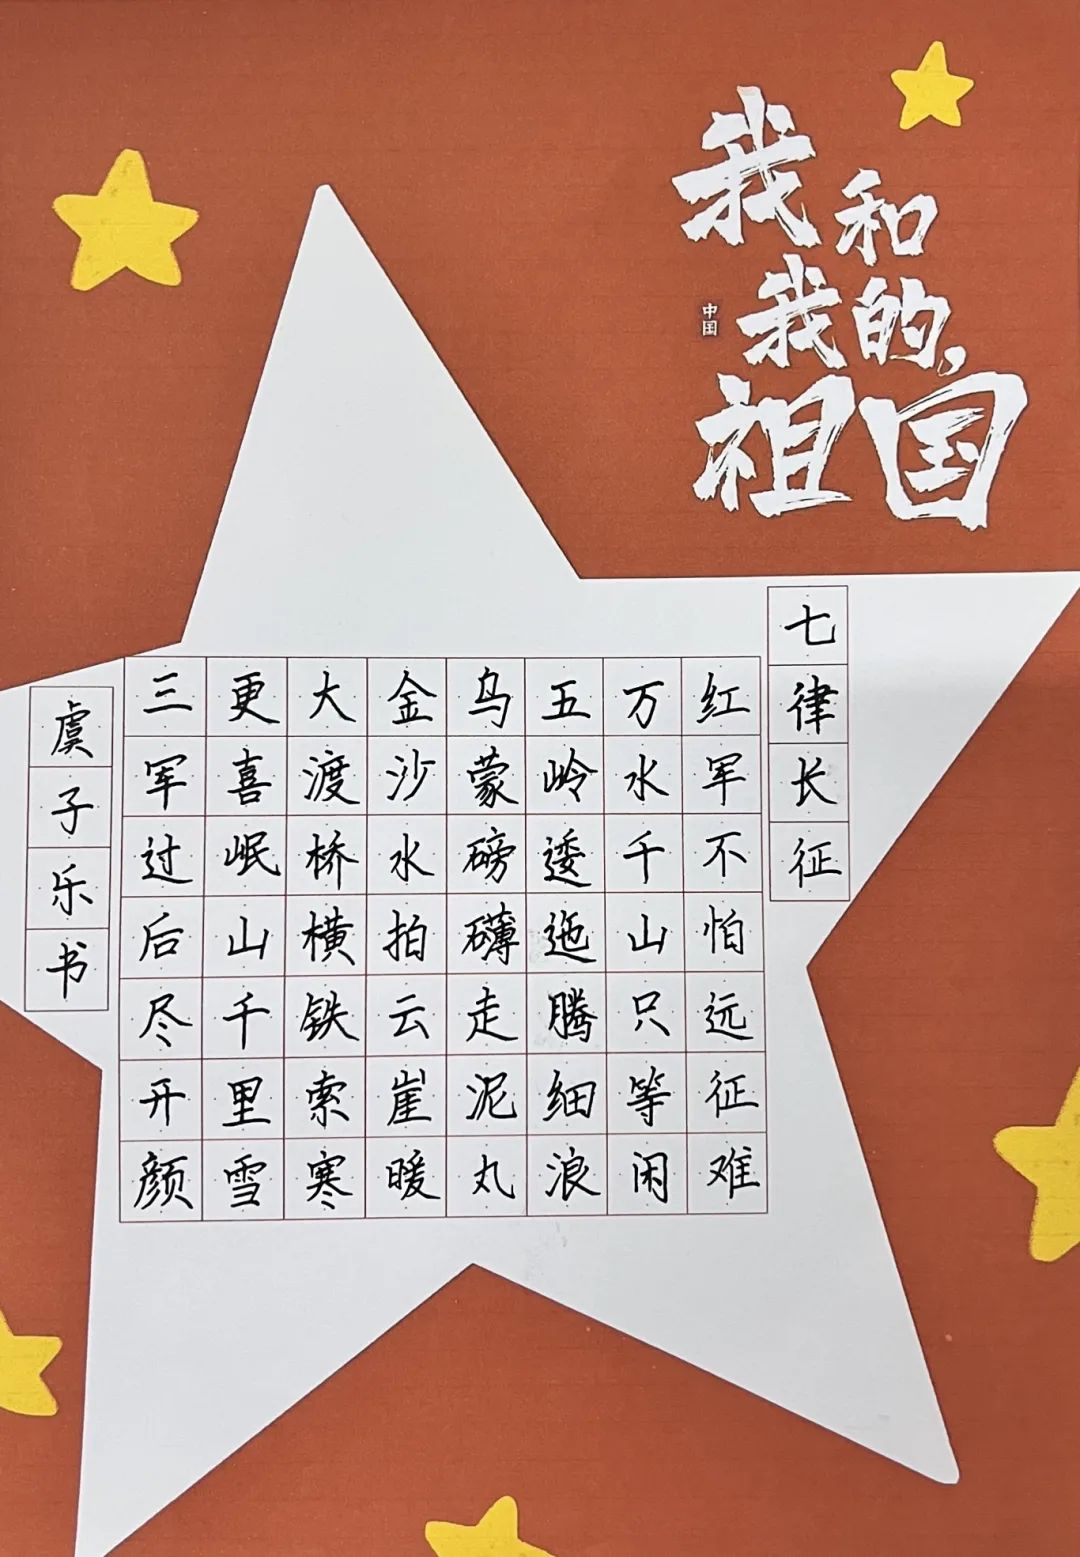 我和
我的,
祖国
中国
七律长征
红军不怕远征难
万水千山只等闲
五岭逶迤腾细浪
乌蒙磅礴走泥丸
金沙水拍云崖暖
大渡桥横铁索寒
更喜岷山千里雪
三军过后尽开颜
虞子乐书